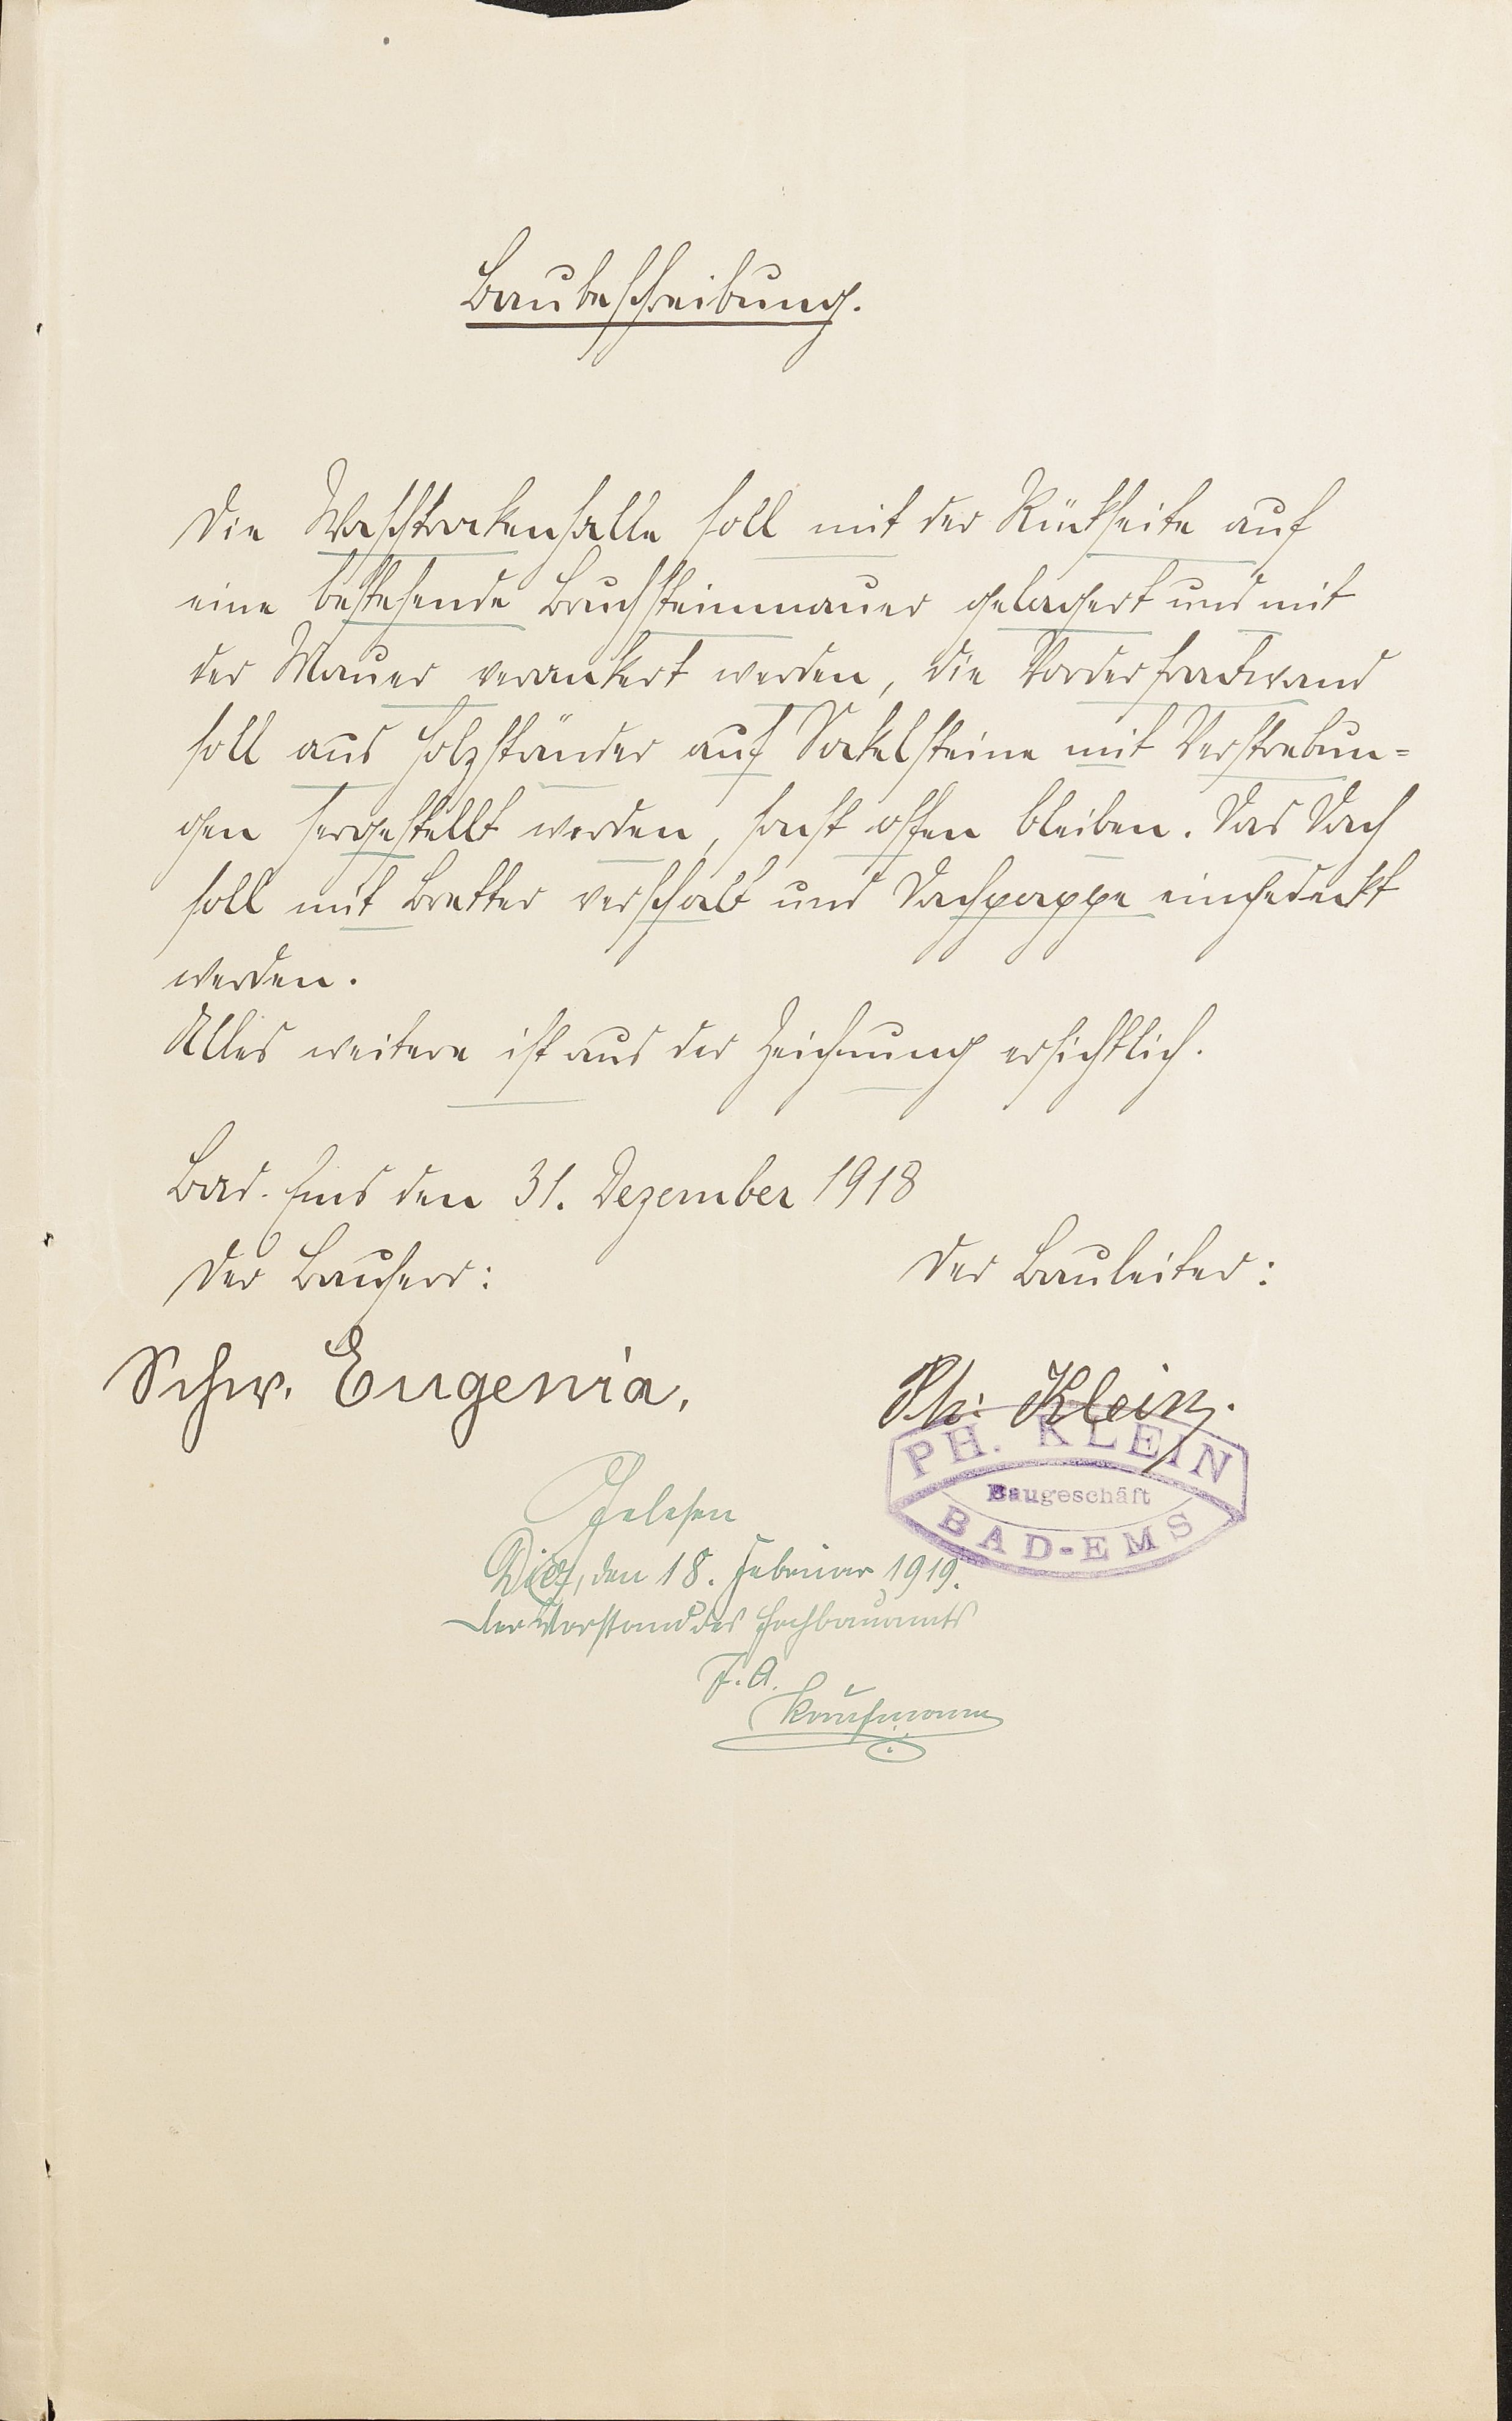 Baubeschreibung.
Die Waschtrockenhalle soll mit der Rückseite auf
eine bestehende Bruchsteinmauer gelagert und mit
der Mauer verankert werden, die Vorderfrontwand
soll aus Holzständer auf Sockelsteine mit Verstrebun=
gen hergestellt werden, sonst offen bleiben. Das Dach
soll mit Bretter verschalt und Dachpappe eingedeckt
werden.
Alles weitere ist aus der Zeichnung ersichtlich.
Bad. Ems den 31. Dezember 1918
Der Bauherr:
Der Bauleiter:
Schw. Eugenia.
Ph: Klein.
PH. KLEIN
Baugeschäft
BAD-EMS
Gelesen
Diez, den 18. Februar 1919.
Der Vorstand des Hochbauamts
J. A.
Kaufmann